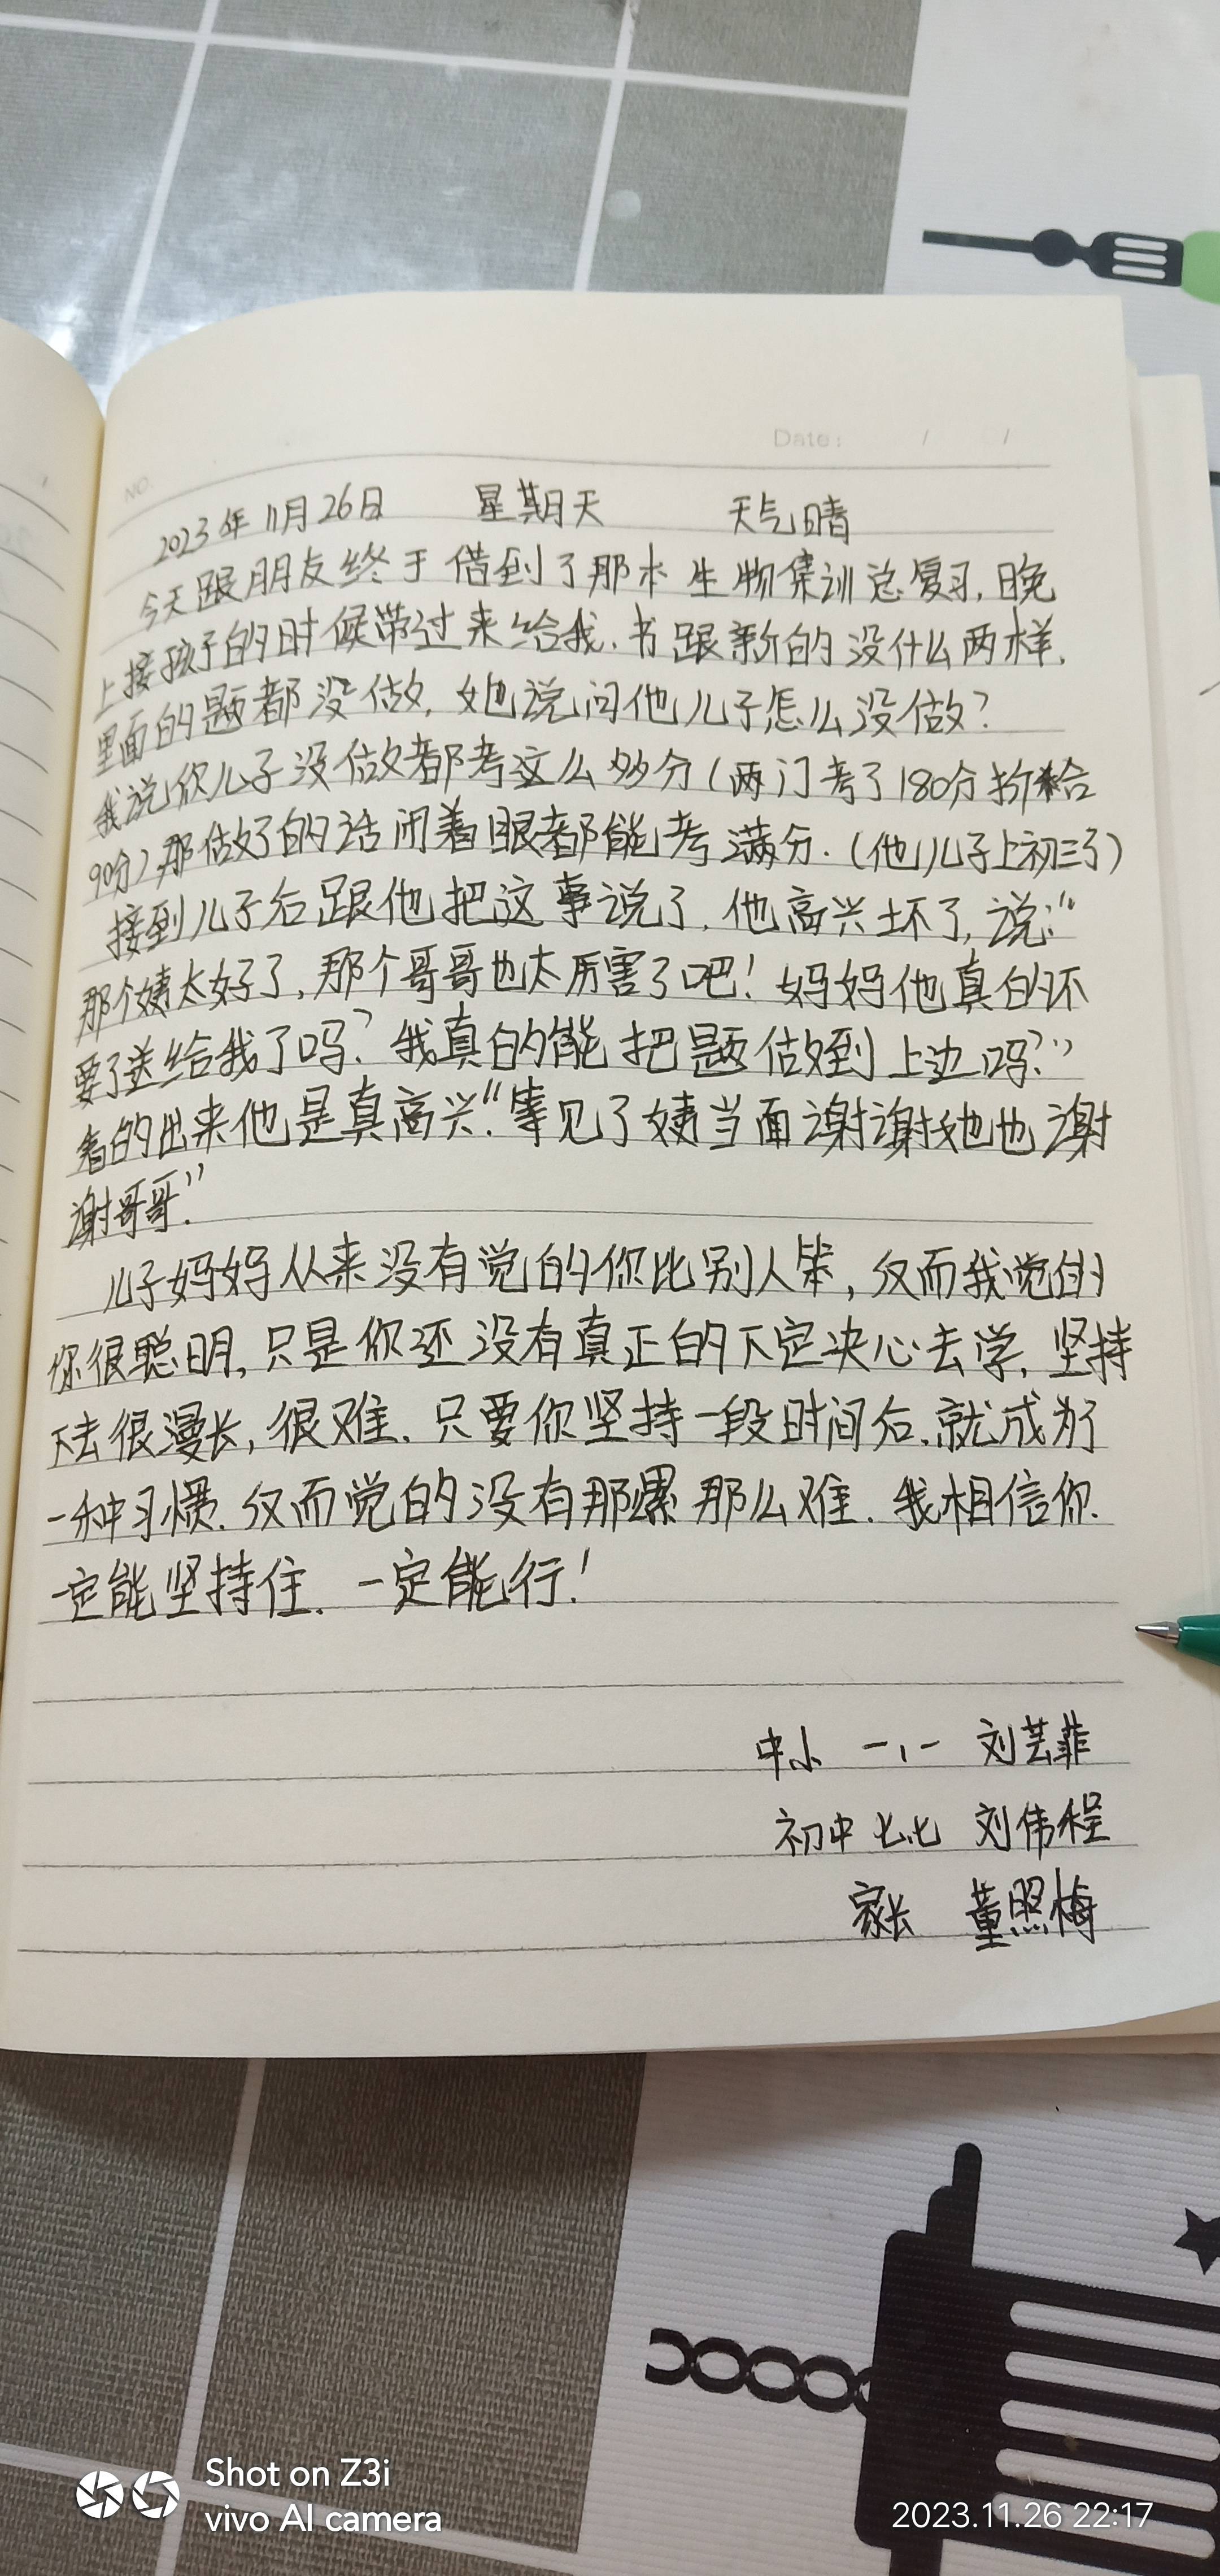 Date: / /
NO.
2023年11月26日 星期天 天气晴
今天跟朋友终于借到了那本生物集训总复习,晚
上接孩子的时候带过来给我.书跟新的没什么两样.
里面的题都没做,她说问他儿子怎么没做?
我说你儿子没做都考这么多分(两门考了180分折合
90分)那做了的话闭着眼都能考满分.(他儿子上初三了)
接到儿子后跟他把这事说了.他高兴坏了,说:“
那个姨太好了,那个哥哥也太厉害了吧!妈妈他真的不
要了送给我了吗?我真的能把题做到上边吗?”
看的出来他是真高兴.“等见了姨当面谢谢她也谢
谢哥哥.”
儿子妈妈从来没有觉的你比别人笨,反而我觉的
你很聪明,只是你还没有真正的下定决心去学.坚持
下去很漫长,很难.只要你坚持一段时间后.就成为了
一种习惯.反而觉的没有那累那么难.我相信你.
一定能坚持住.一定能行!
中小 一、一 刘芸菲
初中 七.七 刘伟程
家长 董照梅
Shot on Z3i
vivo AI camera
2023.11.26 22:17